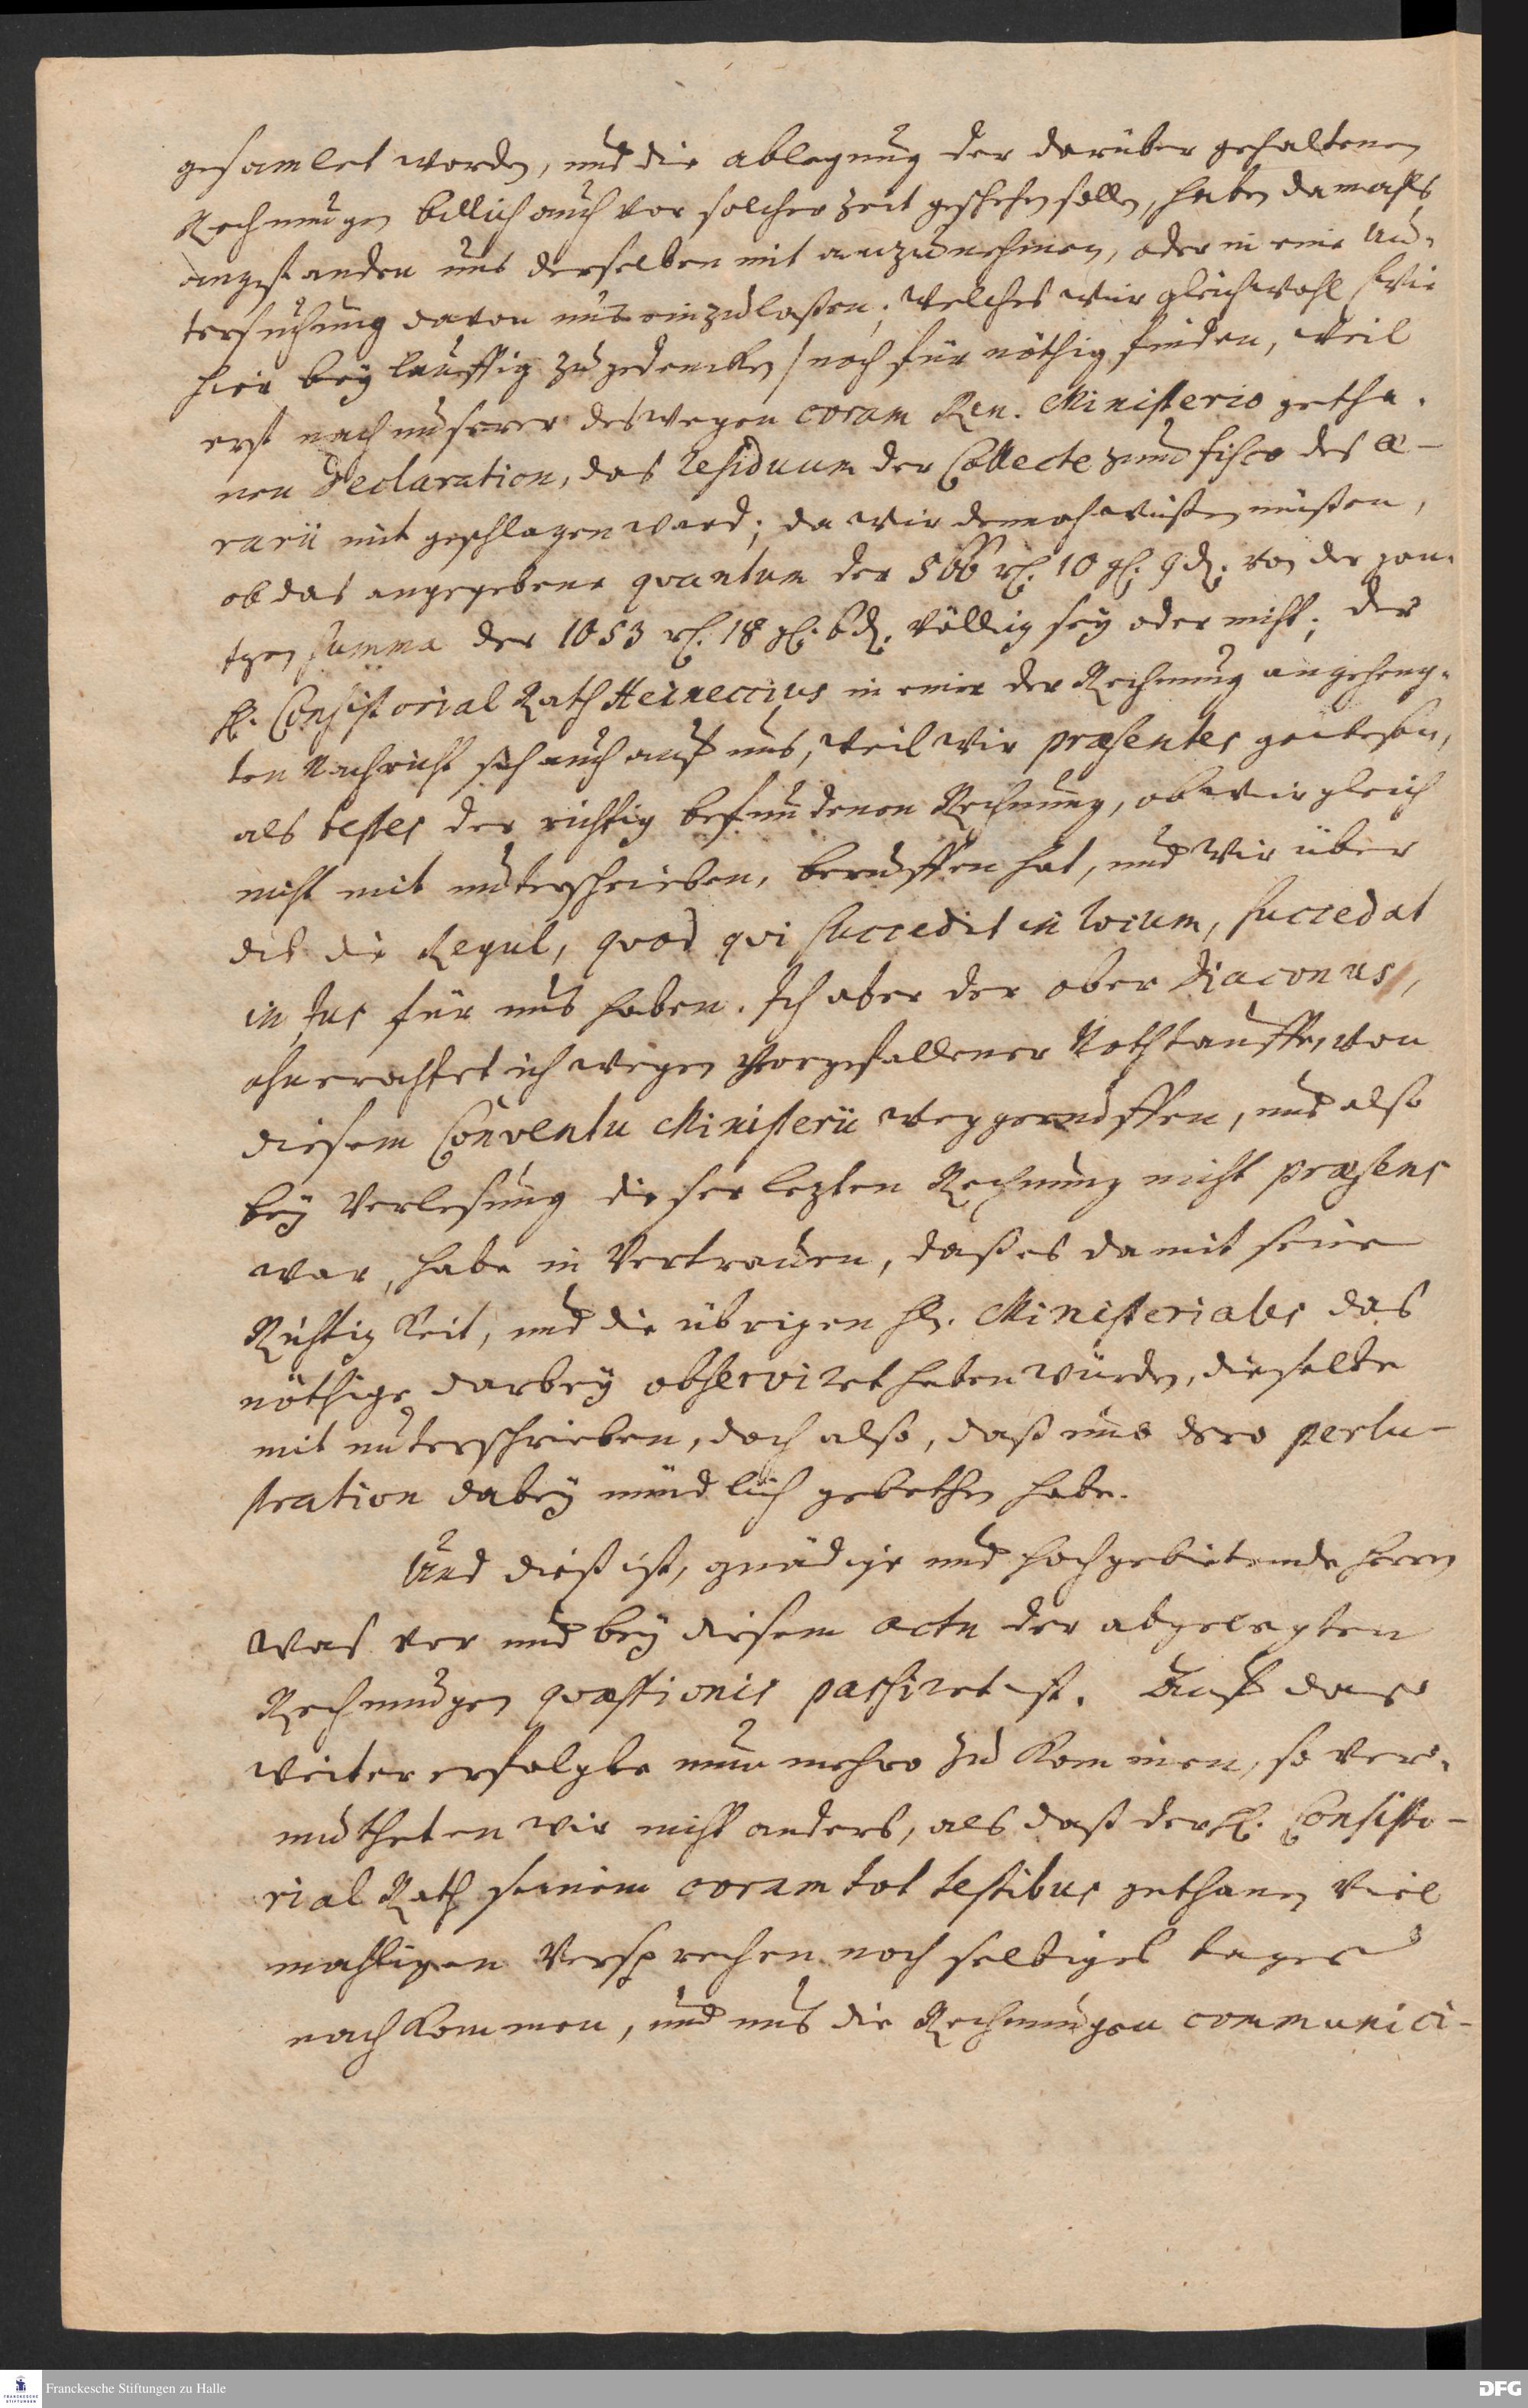 gesamlet worden, und die ablegung der darüber gehaltenen
Rechnungen billich auch vor solcher Zeit geschehen sollen, haben damahls
angestanden uns derselben mit anzunehmen, oder in eine Un-
tersuchung davon uns einzulaßen; welches wir gleichwohl /wie
hier beyläuffig zu gedencken/ noch für nöthig finden, weil
erst nach unserer deswegen coram Ren. Ministerio getha-
nen Declaration, das residuum der Collecte zum fisco des æ-
rarii mit geschlagen ward; da wir dennoch wißen müßen,
ob das angegebene quantum der 566 rl. 10 gl. 9 d. von der gan-
tzen summa der 1053 rl. 18 gl. 6 d. völlig sey oder nicht; der
H. Consistorial Rath Heineccius in einer der Rechnung angeheng-
ten Nachricht sich auch auf uns, weil wir præsentes gewesen,
als testes der richtig befundenen Rechnung, ob wir gleich
nicht mit unterschrieben, beruffen hat, und wir über
dis die Regul, quod qui succedit in locum, succedat
in jus für uns haben. Ich aber der ober Diaconus,
ohnerachtet ich wegen vorgefallener Nothtauffe, von
diesem Conventu Ministerii weggeruffen, und also
bey Verlesung dieser lezten Rechnung nicht præsens
war, habe in Vertrauen, daß es damit seine
Richtigkeit, und die übrigen Hn. Ministeriales das
nöthige darbey observiret haben würden, dieselbe
mit unterschrieben, doch also, daß umb dero perlu-
stration dabey mündlich gebethen habe.
Und dieß ist, gnädige und hochgebietende Herren
was vor und bey diesem actu der abgelegten
Rechnungen quæstionis passiret ist. Auf das
weiter erfolgte nunmehro zu kommen, so ver-
mutheten wir nicht anders, als daß der H. Consisto-
rial Rath seinem coram tot testibus gethanen viel
mahligen Versprechen noch selbiges tages
nachkommen, und uns die Rechnungen communici-
Franckesche Stiftungen zu Halle
DFG